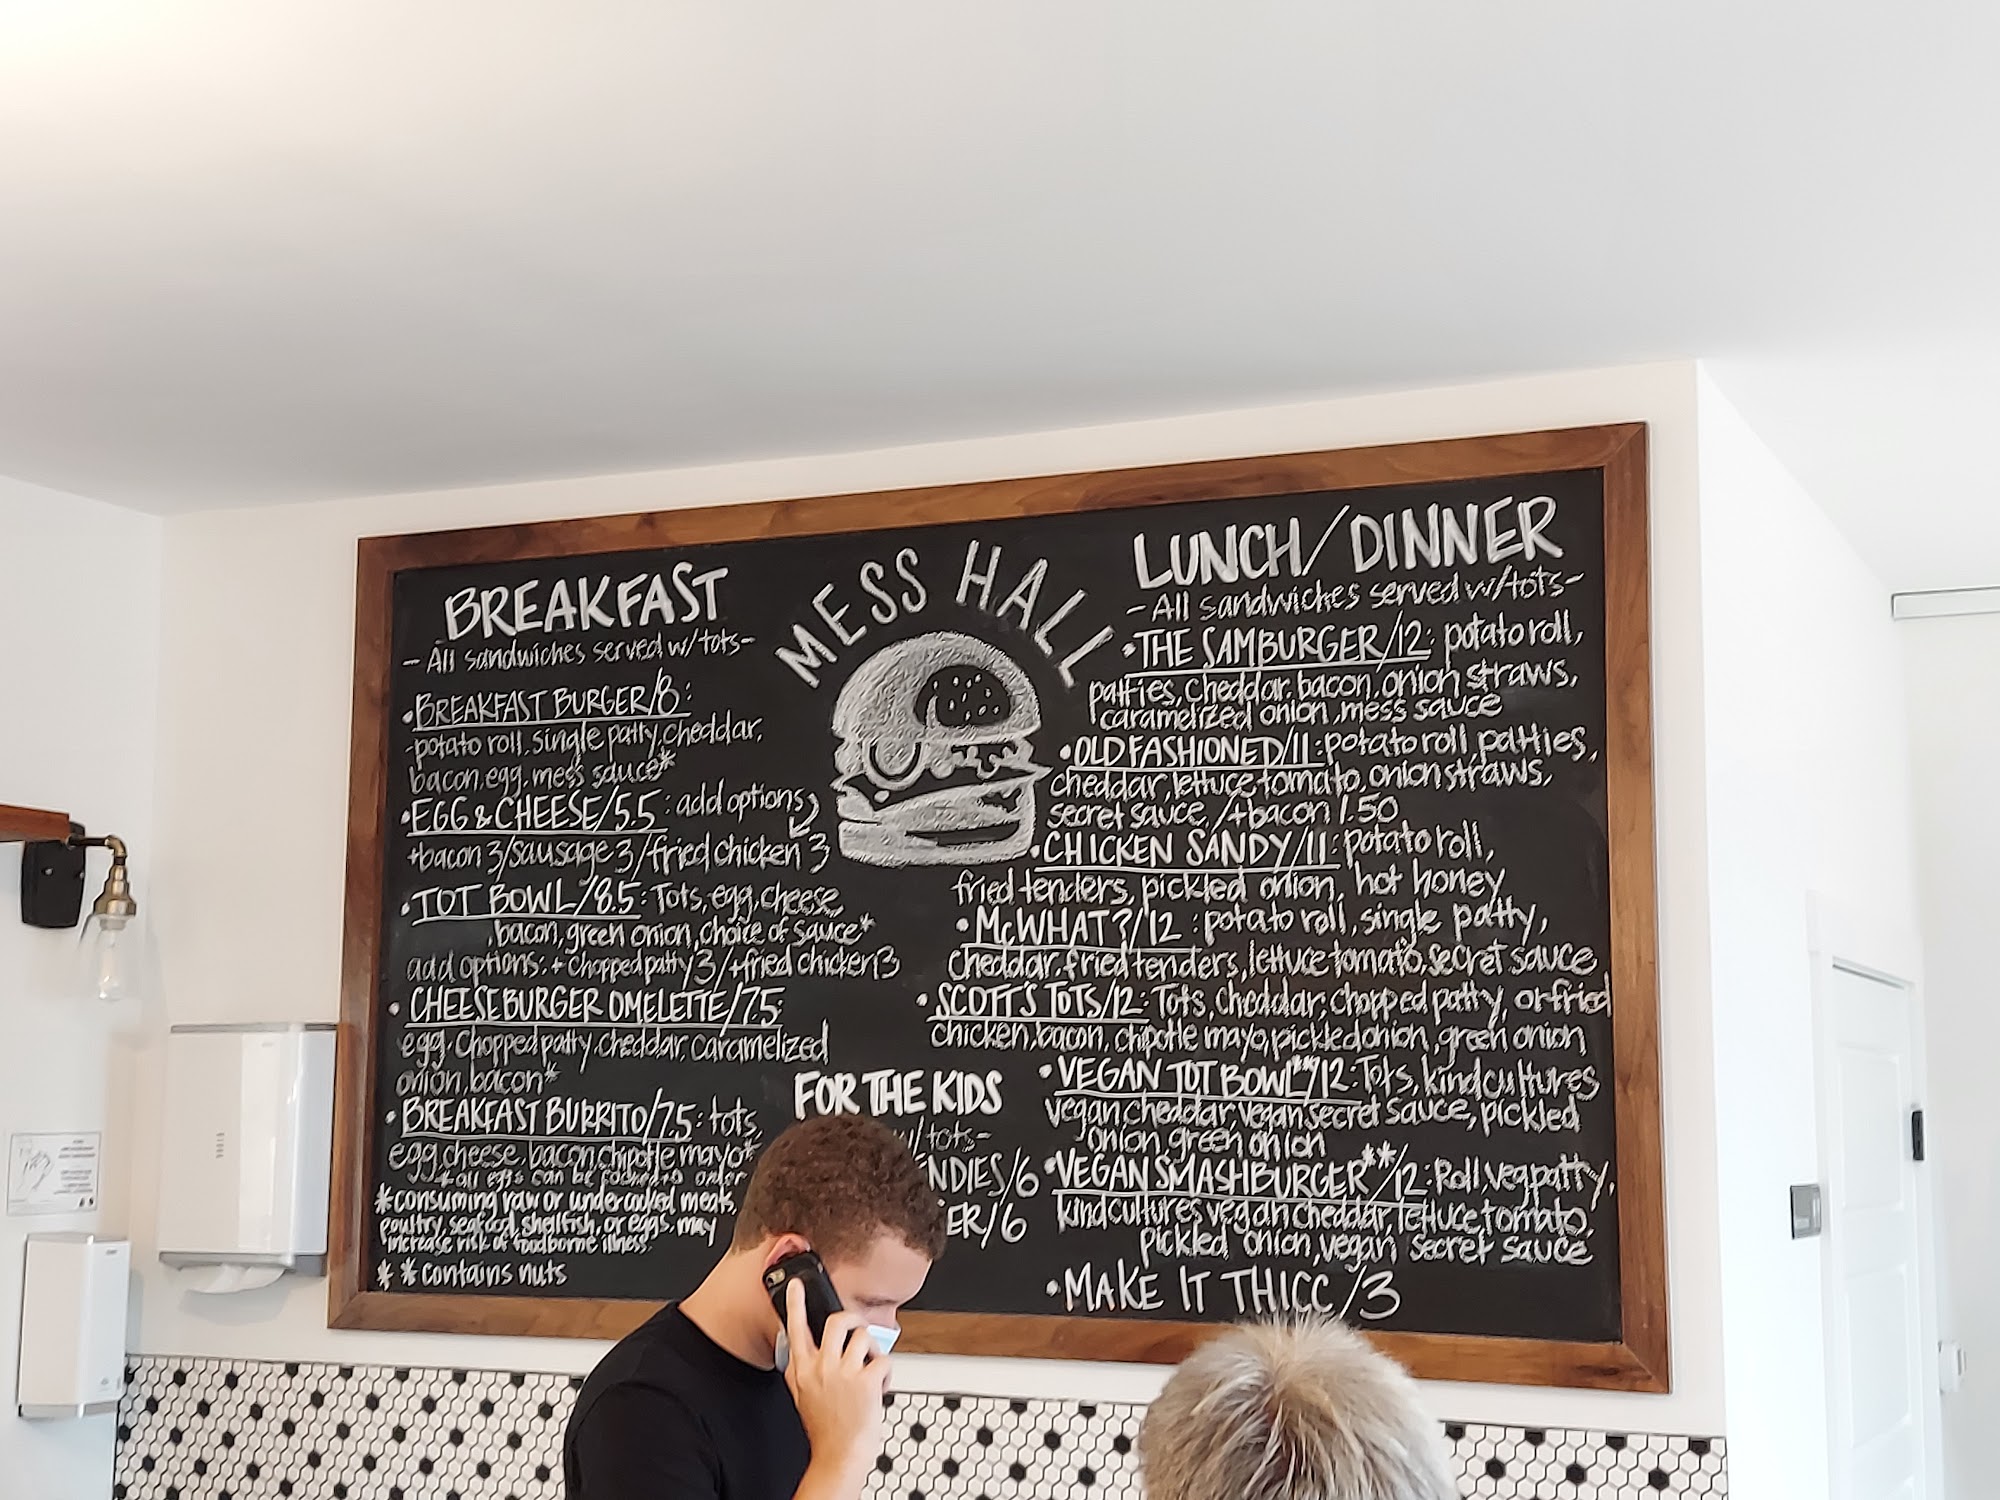 MESS HALL
BREAKFAST
- All sandwiches served w/tots -
• BREAKFAST BURGER/8:
-potato roll, single patty, cheddar,
bacon, egg, mess sauce*
• EGG & CHEESE/5.5: add options
+bacon 3/sausage 3/fried chicken 3
• TOT BOWL/8.5: Tots, egg, cheese,
bacon, green onion, choice of sauce*
add options: + chopped patty 3/+fried chicken 3
• CHEESEBURGER OMELETTE/7.5:
egg, chopped patty, cheddar, caramelized
onion, bacon*
• BREAKFAST BURRITO/7.5: tots,
egg, cheese, bacon, chipotle mayo*
*all eggs can be cooked to order
*consuming raw or undercooked meats,
poultry, seafood, shellfish, or eggs, may
increase risk of foodborne illness.
* *contains nuts
FOR THE KIDS
w/tots-
NDIES/6
ER/6
LUNCH/DINNER
- All sandwiches served w/tots -
• THE SAMBURGER/12: potato roll,
patties, cheddar, bacon, onion straws,
caramelized onion, mess sauce
• OLD FASHIONED/11: potato roll, patties,
cheddar, lettuce, tomato, onion straws,
secret sauce, /+bacon 1.50
• CHICKEN SANDY/11: potato roll,
fried tenders, pickled onion, hot honey
• McWHAT?/12: potato roll, single patty,
cheddar, fried tenders, lettuce, tomato, secret sauce
• SCOTT'S TOTS/12: Tots, cheddar, chopped patty, or fried
chicken, bacon, chipotle mayo, pickled onion, green onion
• VEGAN TOT BOWL**/12: Tots, kindcultures
vegan cheddar, vegan secret sauce, pickled
onion, green onion
• VEGAN SMASHBURGER**/12: Roll, veg patty,
kindcultures vegan cheddar, lettuce, tomato,
pickled onion, vegan secret sauce
• MAKE IT THICC/3